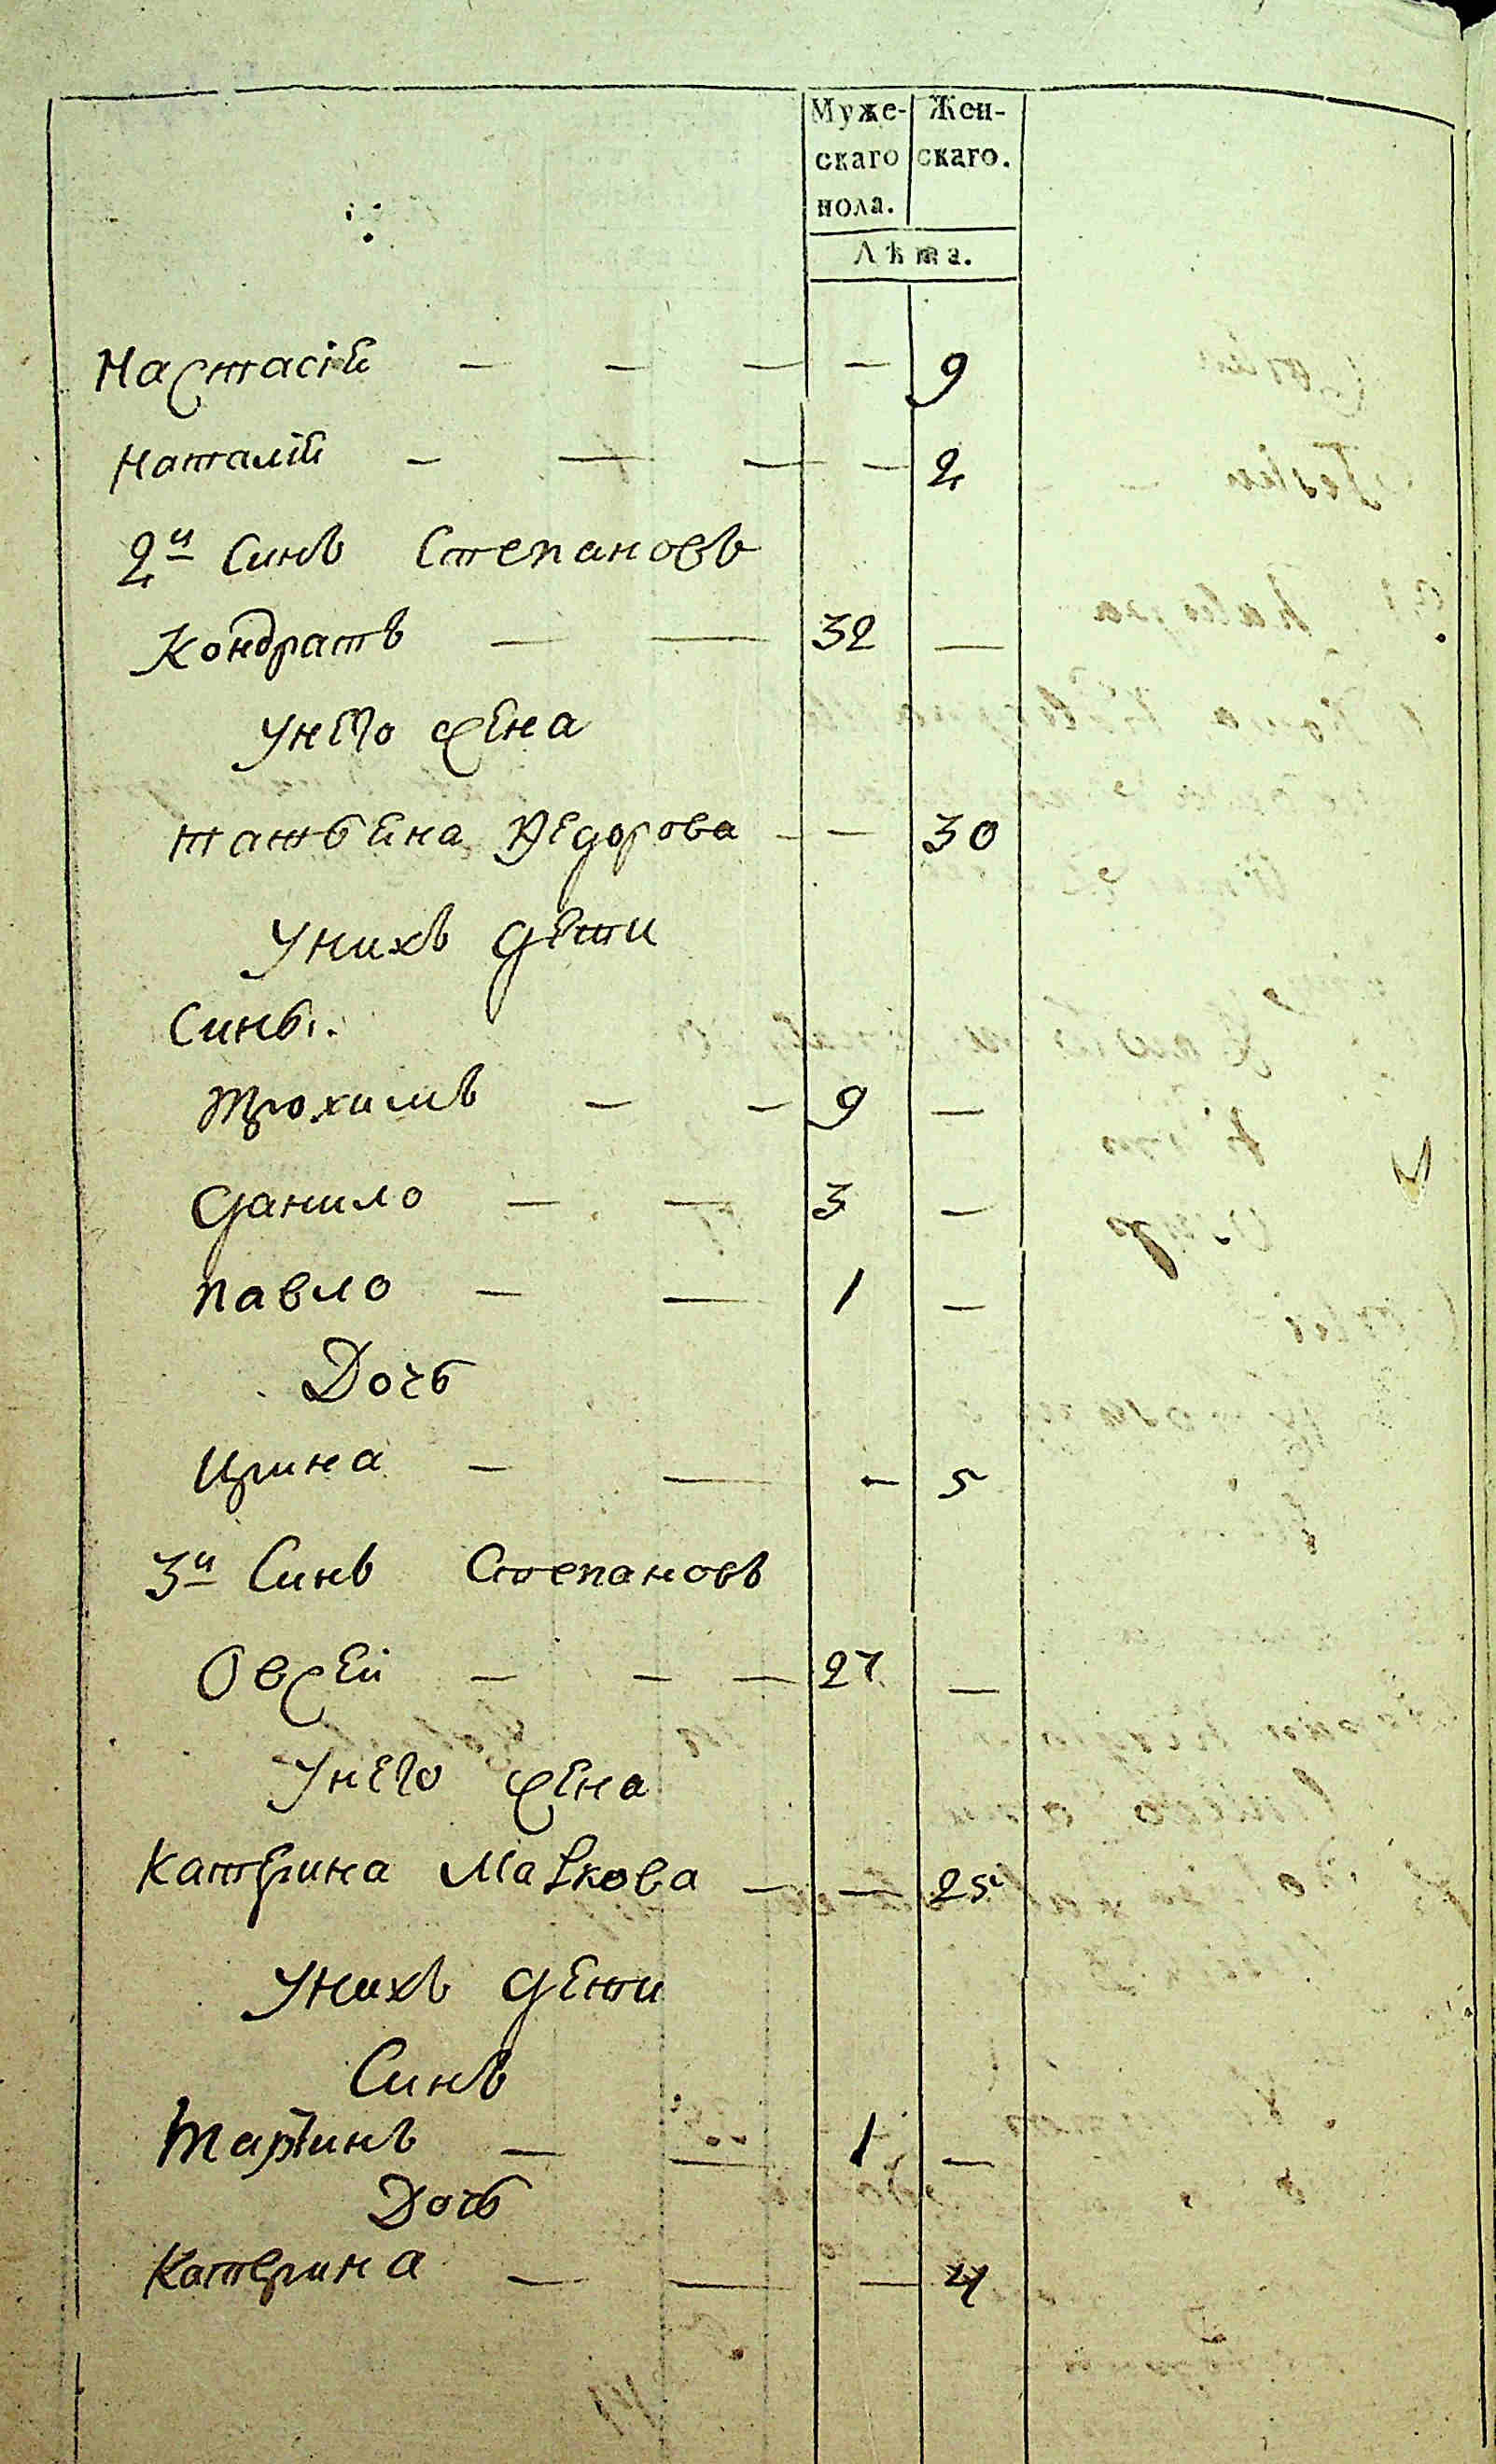 Муже- Жен-
скаго скаго.
пола.
Лѣта.
Настасія — — — — 9
Наталія — — — — 2
2й Синъ Степановъ
Кондратъ — — 32 —
Унего жена
татьяна Федорова — — 30
Унихъ дѣти
Сины.
Трохимъ — — 9 —
Данило — — 3 —
павло — — 1 —
Дочь
Ирина — — — 5
3й Синъ Степановъ
Овсей — — — 27 —
Унего жена
Катерина Маркова — — 25
Унихъ дети
Синъ
Мартинъ — — 1 —
Дочь
Катерина — — — 4